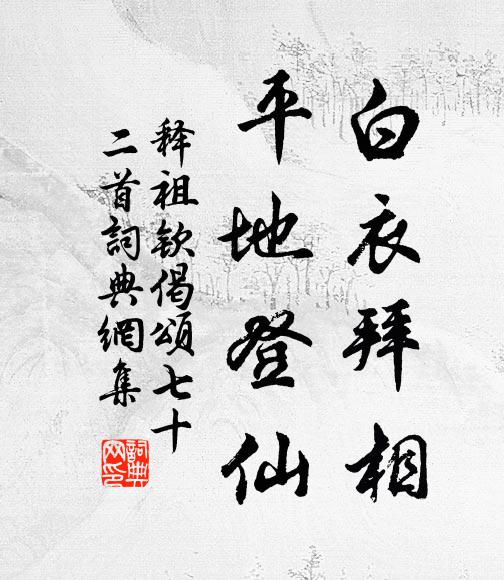 白衣拜相
平地登仙
释祖钦偈颂七十
二首詞典網集
詞典
网印